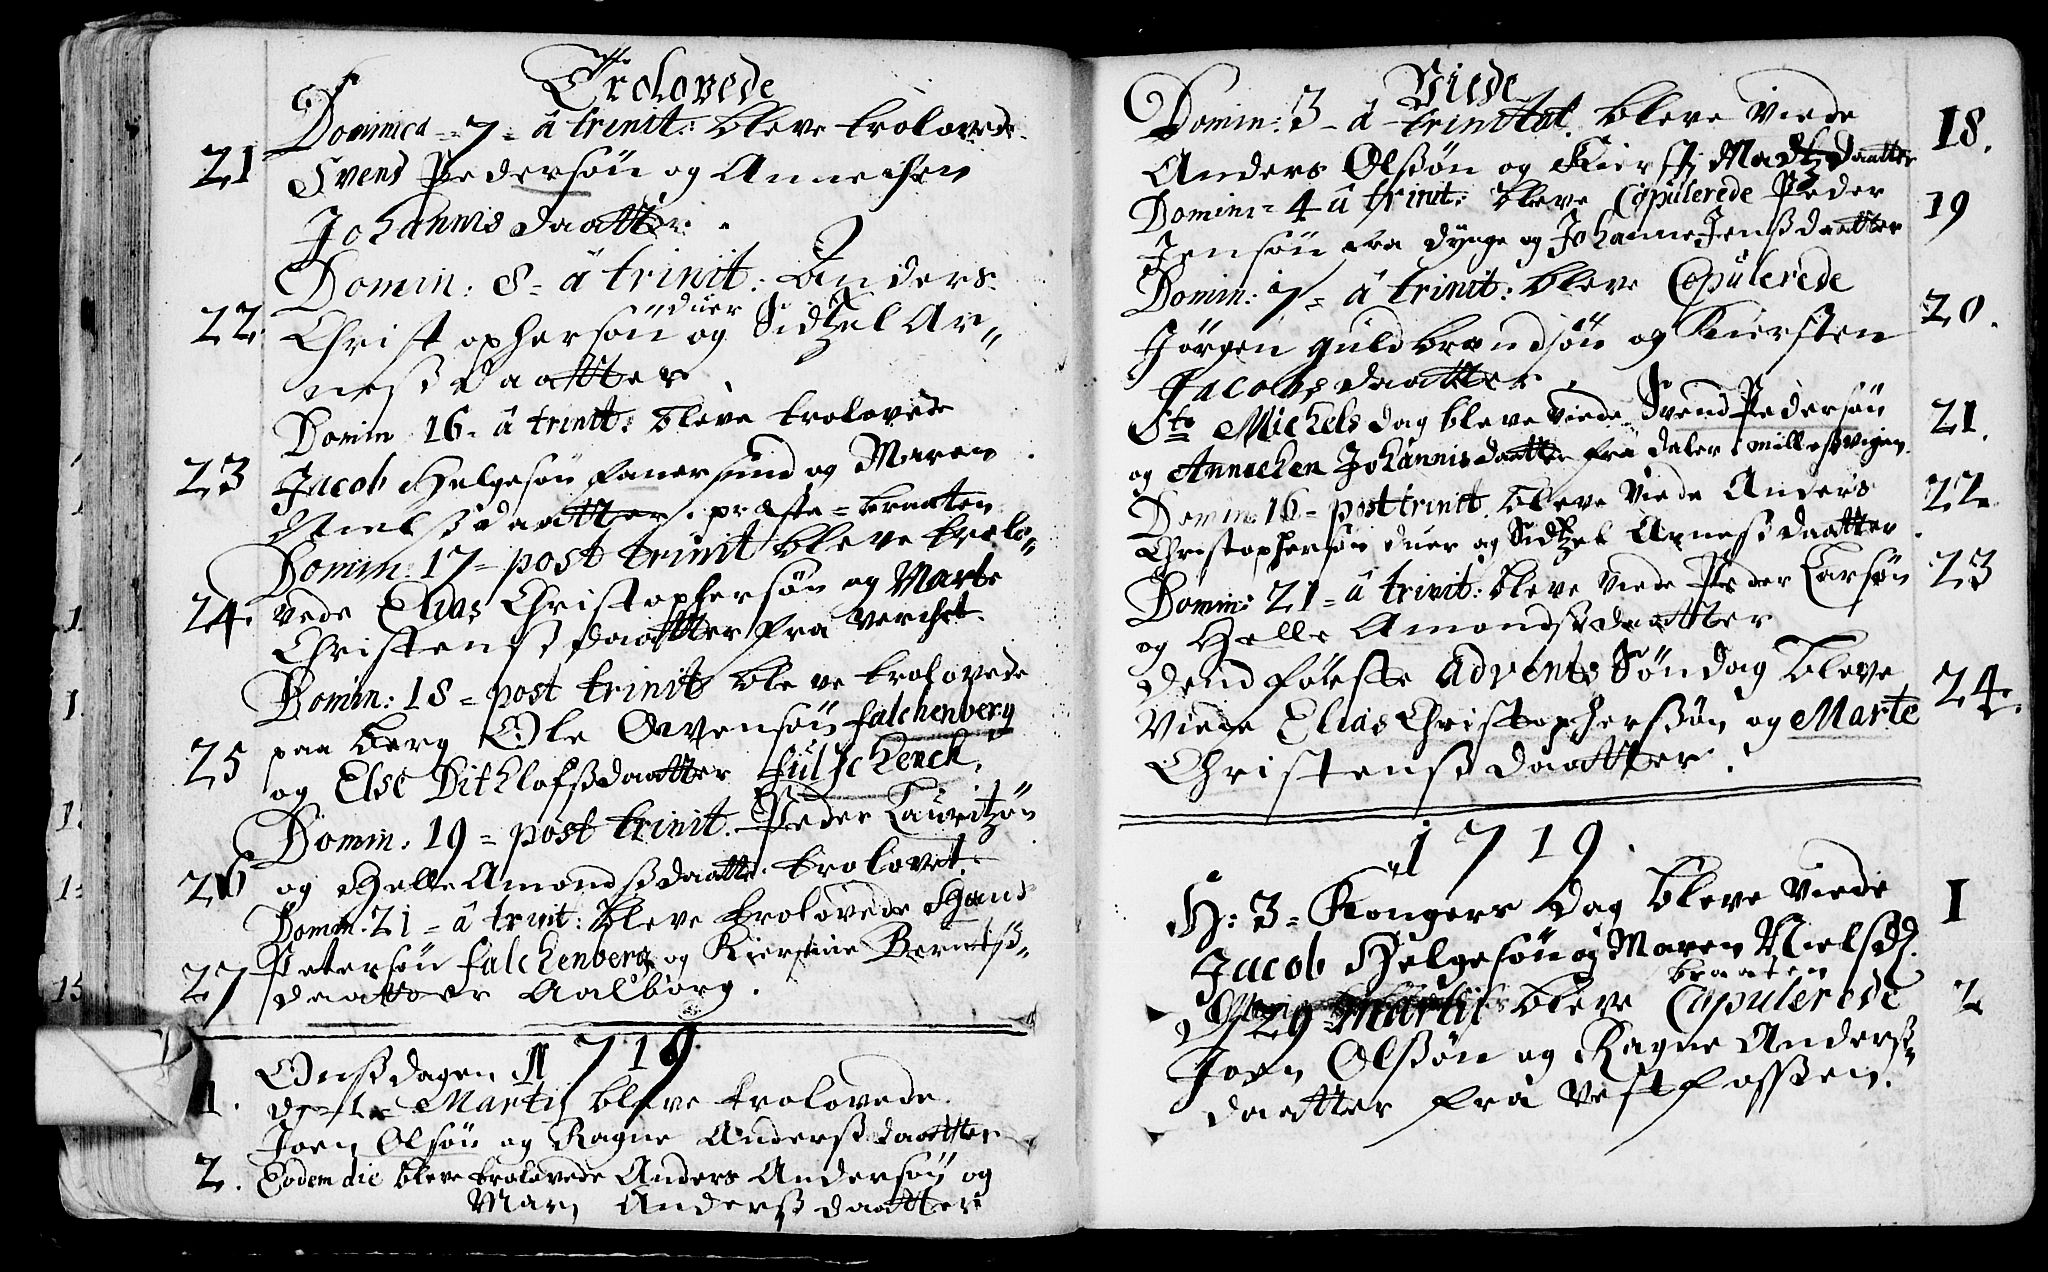 Trolovede
Dominica = 7 = â trinit: bleve trolovede
21 Svend Pedersøn og Annechen
Johannisdaatter.
Domin: 8 = â trinit: Anders
duer
22. Christophersøn og Sidtzel Ar=
nesdaatter
Domin 16. â trinit: bleve trolovede
23 Jacob Helgesøn fanersund og Maren
Nielsdaatter. præste=braaten
Domin: 17 = post trinit bleve trolo=
24. vede Elias Christophersøn og Marte
Christensdaatter fra
Domin: 18 = post trinit bleve trolovede
25 paa berg Ole Svensøn falchenberg
og Else Dithlofsdaatter
Domin. 19 = post trinit. Peder Lauritzøn
26 og Helle Amondsdaatter trolovet.
Domin. 21 = â trinit: bleve trolovede Hans
Petersøn falchenberg og Kierstine Berntß=
27 daatter Aalborg.
1719.
Onsdagen
1. d. 1. Martij bleve trolovede
Joen Olsøn og Ragne Andersdaatter
2. Eodem die bleve trolovede Anders Andersøn og
Mari Andersdaatter
Viede
Domin: 3 - â trinitat. bleve viede
Anders Olsøn og Kiersti Madtzdaatter 18.
Domin: 4 â trinit: bleve Copulerede Peder
Jensøn fra dynge og Johanne Jensdaatter 19
Domin: 7 = â trinit: bleve Copulerede
Jørgen guldbrandsøn og Kiersten 20.
Jacobsdaatter.
Sts Michels dag bleve viede Svend Pedersøn 21.
og Annechen Johannisdaatter fra daler i
Domin: 16 = post trinit. bleve viede Anders 22.
Christophersøn duer og Sidtzel Arnesdaatter.
Domin: 21 = â trinit: bleve viede Peder Larsøn 23
og Helle Amondsdaatter
Dend første Advents Søndag bleve
Viede Elias Christophersøn og Marte 24.
Christensdaatter.
1719.
H: 3 = Konger dag bleve viede 1
Jacob Helgesøn og Maren Nielsd.
braaten
d. 29 Martii bleve Copulerede 2
Joen Olsøn og Ragne Anders=
daatter fra Vestfossen.